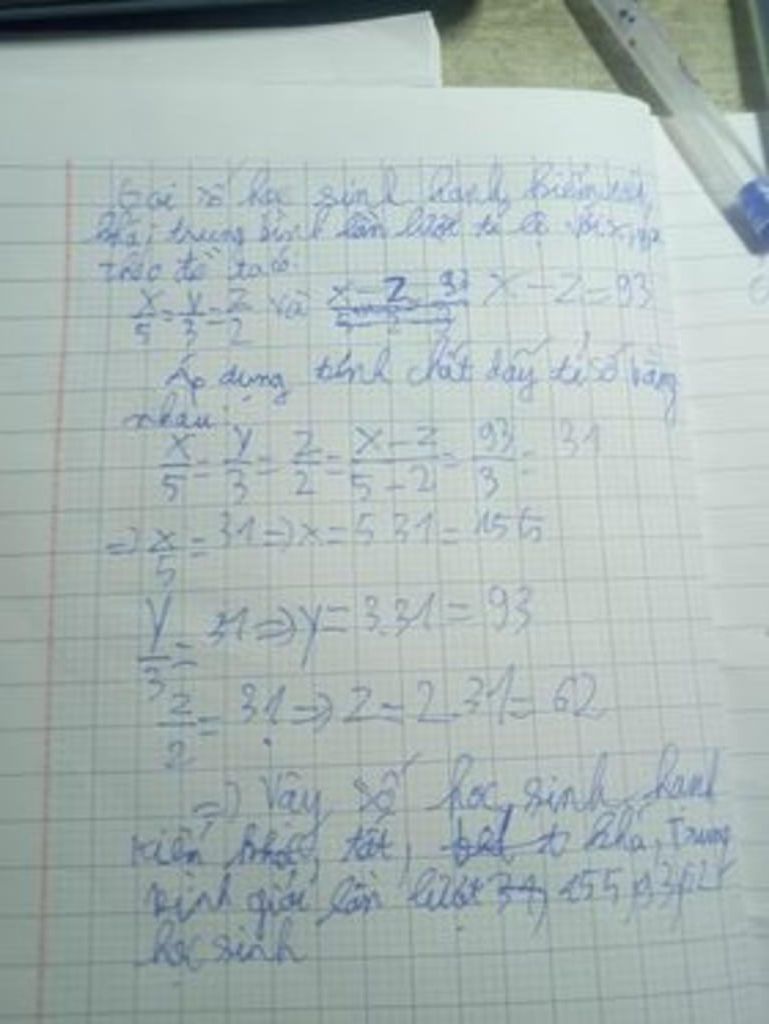 Gọi số học sinh hạnh kiểm tốt,
khá, trung bình lần lượt tỉ lệ với x, y, z
Theo đề ta có:
x/5 = y/3 = z/2 và x - z = 93
Áp dụng tính chất dãy tỉ số bằng
nhau:
x/5 = y/3 = z/2 = x-z/5-2 = 93/3 = 31
=> x/5 = 31 => x = 5.31 = 155
y/3 = 31 => y = 3.31 = 93
z/2 = 31 => z = 2.31 = 62
=> Vậy số học sinh hạnh
kiểm tốt, khá, Trung
bình lần lượt 155, 93, 62
học sinh